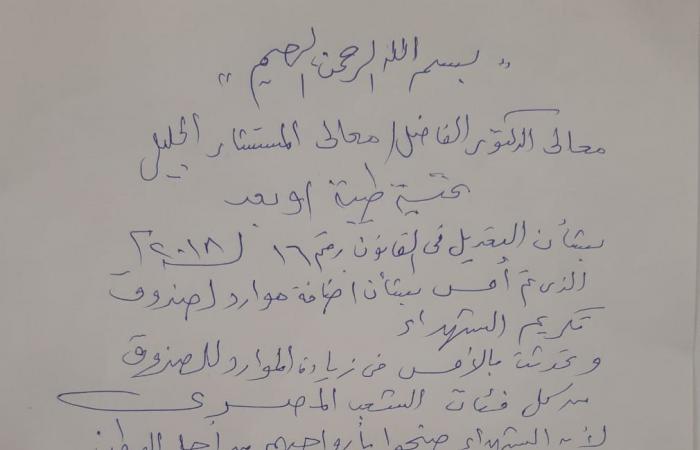 " بسم الله الرحمن الرحيم "
معالى الدكتور الفاضل / معالى المستشار الجليل
تحية طيبة وبعد
بشأن التعديل فى القانون رقم ١٦ لـ ٢٠١٨
الذى تم أمس بشأن اضافة موارد لصندوق
تكريم الشهداء
وتحدثت بالأمس فى زيادة الموارد للصندوق
من كل فئات الشعب المصرى
لأن الشهداء ضحوا بأرواحهم من أجل الوطن